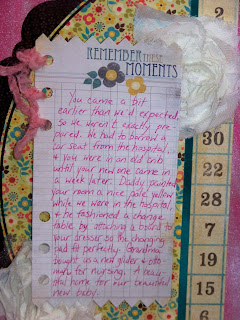 REMEMBER THESE
MOMENTS
You came a bit
earlier than we'd expected.
So we weren't exactly pre
pared. We had to borrow a
car seat from the hospital.
& you were in an old crib
until your new one came in
a week later. Daddy painted
your room a nice pale yellow
while we were in the hospital
& he fashioned a change
table by attaching a board to
your dresser so the changing
pad fit perfectly. Grandma
bought us a new glider & otto-
man for nursing. A beau-
tiful home for our beautiful
new baby.
30
22
28
18
15
6
2